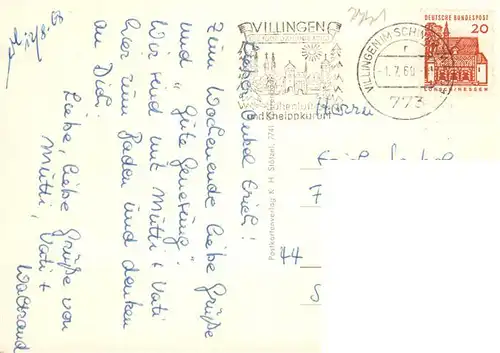 VILLINGEN
Höhenluft-
und Kneippkurort
VILLINGEN IM SCHW
-1.7.69
773
DEUTSCHE BUNDESPOST
20
LORSCH/HESSEN
Herrn
44
Postkartenverlag K. H. Stötzel, 774
Lieber Onkel Erich!
Zum Wochenende liebe Grüße
und "Gute Genesung".
Wir sind mit Mutti + Vati
hier zum Baden und denken
an Dich.
Liebe, liebe Grüße von
Mutti, Vati +
Waltraud